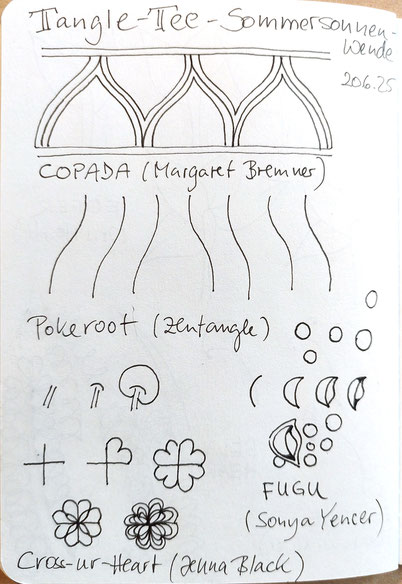 Tangle-Tee-Sommersonnen-
wende
20.6.25
COPADA (Margaret Bremner)
Pokeroot (Zentangle)
FUGU
(Sonya Yencer)
Cross-ur-Heart (Jenna Black)